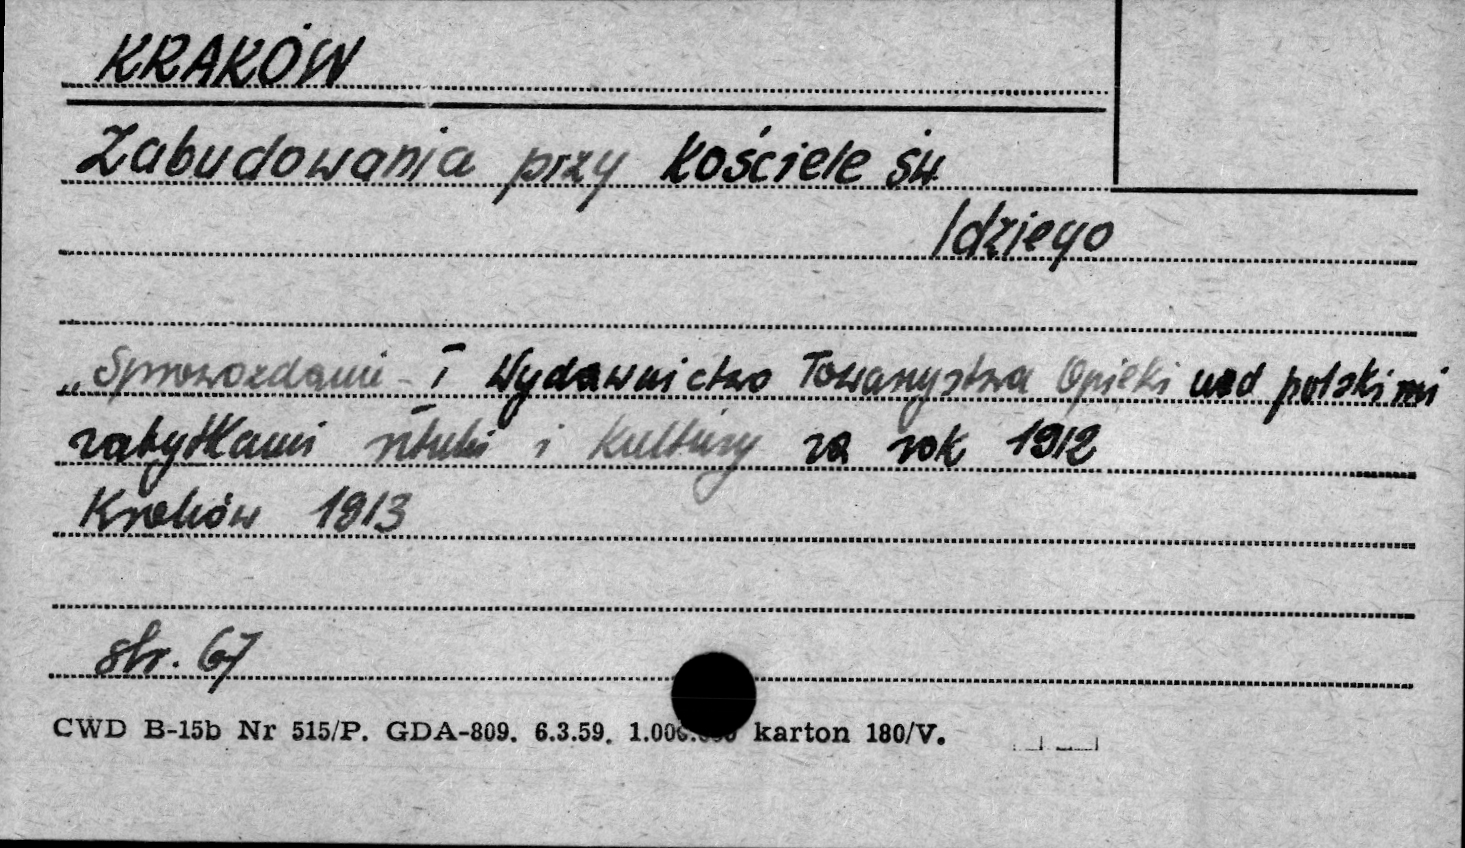 KRAKÓW
Zabudowania przy kościele św
Idziego
„Sprawozdanie - i Wydawnictwo Towarzystwa Opieki nad polskimi
zabytkami sztuki i kultury za rok 1912
Kraków 1913
str. 67
CWD B-15b Nr 515/P. GDA-809. 6.3.59. 1.000.000 karton 180/V.